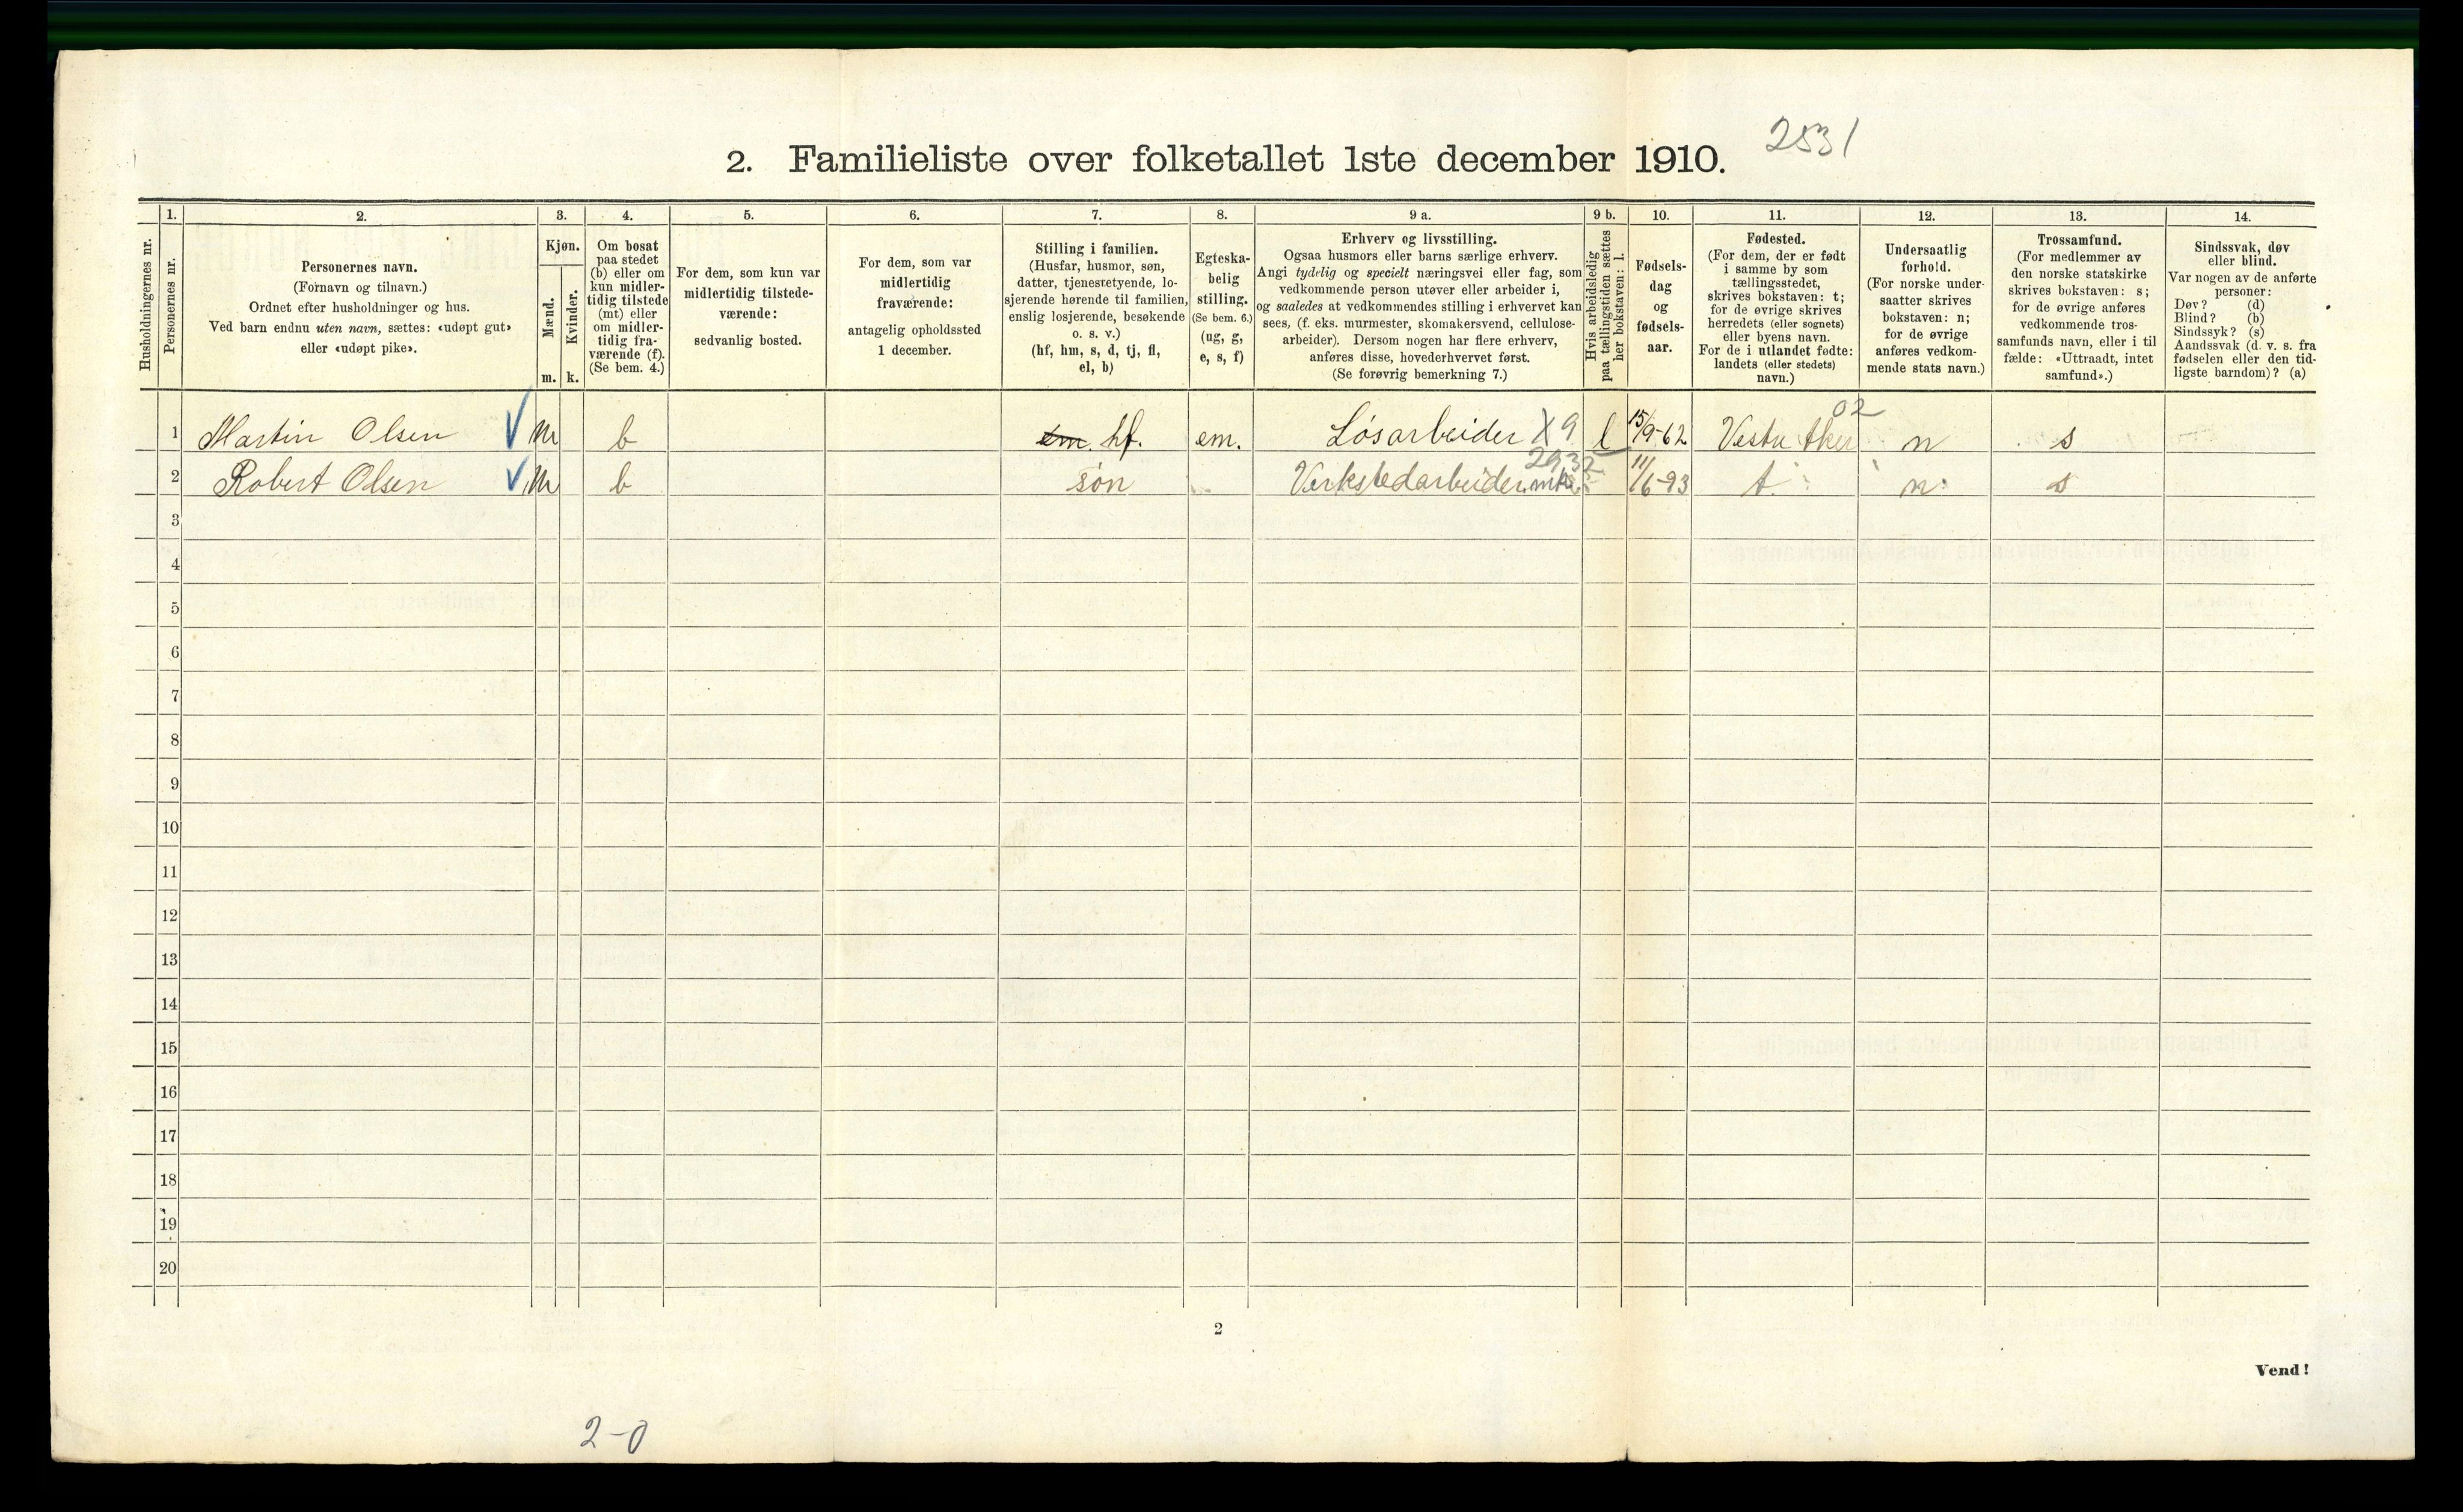 2531
2. Familieliste over folketallet 1ste december 1910.
1. 2. 3. 4. 5. 6. 7. 8. 9 a. 9 b. 10. 11. 12. 13. 14.
Husholdningernes nr.
Personernes nr.
Personernes navn.
(Fornavn og tilnavn.)
Ordnet efter husholdninger og hus.
Ved barn endnu uten navn, sættes: «udøpt gut»
eller «udøpt pike».
Kjøn.
Mænd.
Kvinder.
m. k.
Om bosat
paa stedet
(b) eller om
kun midler-
tidig tilstede
(mt) eller
om midler-
tidig fra-
værende (f).
(Se bem. 4.)
For dem, som kun var
midlertidig tilstede-
værende:
sedvanlig bosted.
For dem, som var
midlertidig
fraværende:
antagelig opholdssted
1 december.
Stilling i familien.
(Husfar, husmor, søn,
datter, tjenestetyende, lo-
sjerende hørende til familien,
enslig losjerende, besøkende
o. s. v.)
(hf, hm, s, d, tj, fl,
el, b)
Egteska-
belig
stilling.
(Se bem. 6.)
(ug, g,
e, s, f)
Erhverv og livsstilling.
Ogsaa husmors eller barns særlige erhverv.
Angi tydelig og specielt næringsvei eller fag, som
vedkommende person utøver eller arbeider i,
og saaledes at vedkommendes stilling i erhvervet kan
sees, (f. eks. murmester, skomakersvend, cellulose-
arbeider). Dersom nogen har flere erhverv,
anføres disse, hovederhvervet først.
(Se forøvrig bemerkning 7.)
Hvis arbeidsledig
paa tællingstiden sættes
her bokstaven: l.
Fødsels-
dag
og
fødsels-
aar.
Fødested.
(For dem, der er født
i samme by som
tællingsstedet,
skrives bokstaven: t;
for de øvrige skrives
herredets (eller sognets)
eller byens navn.
For de i utlandet fødte:
landets (eller stedets)
navn.)
Undersaatlig
forhold.
(For norske under-
saatter skrives
bokstaven: n;
for de øvrige
anføres vedkom-
mende stats navn.)
Trossamfund.
(For medlemmer av
den norske statskirke
skrives bokstaven: s;
for de øvrige anføres
vedkommende tros-
samfunds navn, eller i til
fælde: «Uttraadt, intet
samfund».)
Sindssvak, døv
eller blind.
Var nogen av de anførte
personer:
Døv? (d)
Blind? (b)
Sindssyk? (s)
Aandssvak (d. v. s. fra
fødselen eller den tid-
ligste barndom)? (a)
02
1 Martin Olsen m b em. hf. em. Løsarbeider X9 l 15/9-62 Vestre Aker n s
2932
2 Robert Olsen m b søn Verkstedarbeider. mek. 11/6-93 t. n s
3
4
5
6
7
8
9
10
11
12
13
14
15
16
17
18
19
20
2
Vend!
2-0